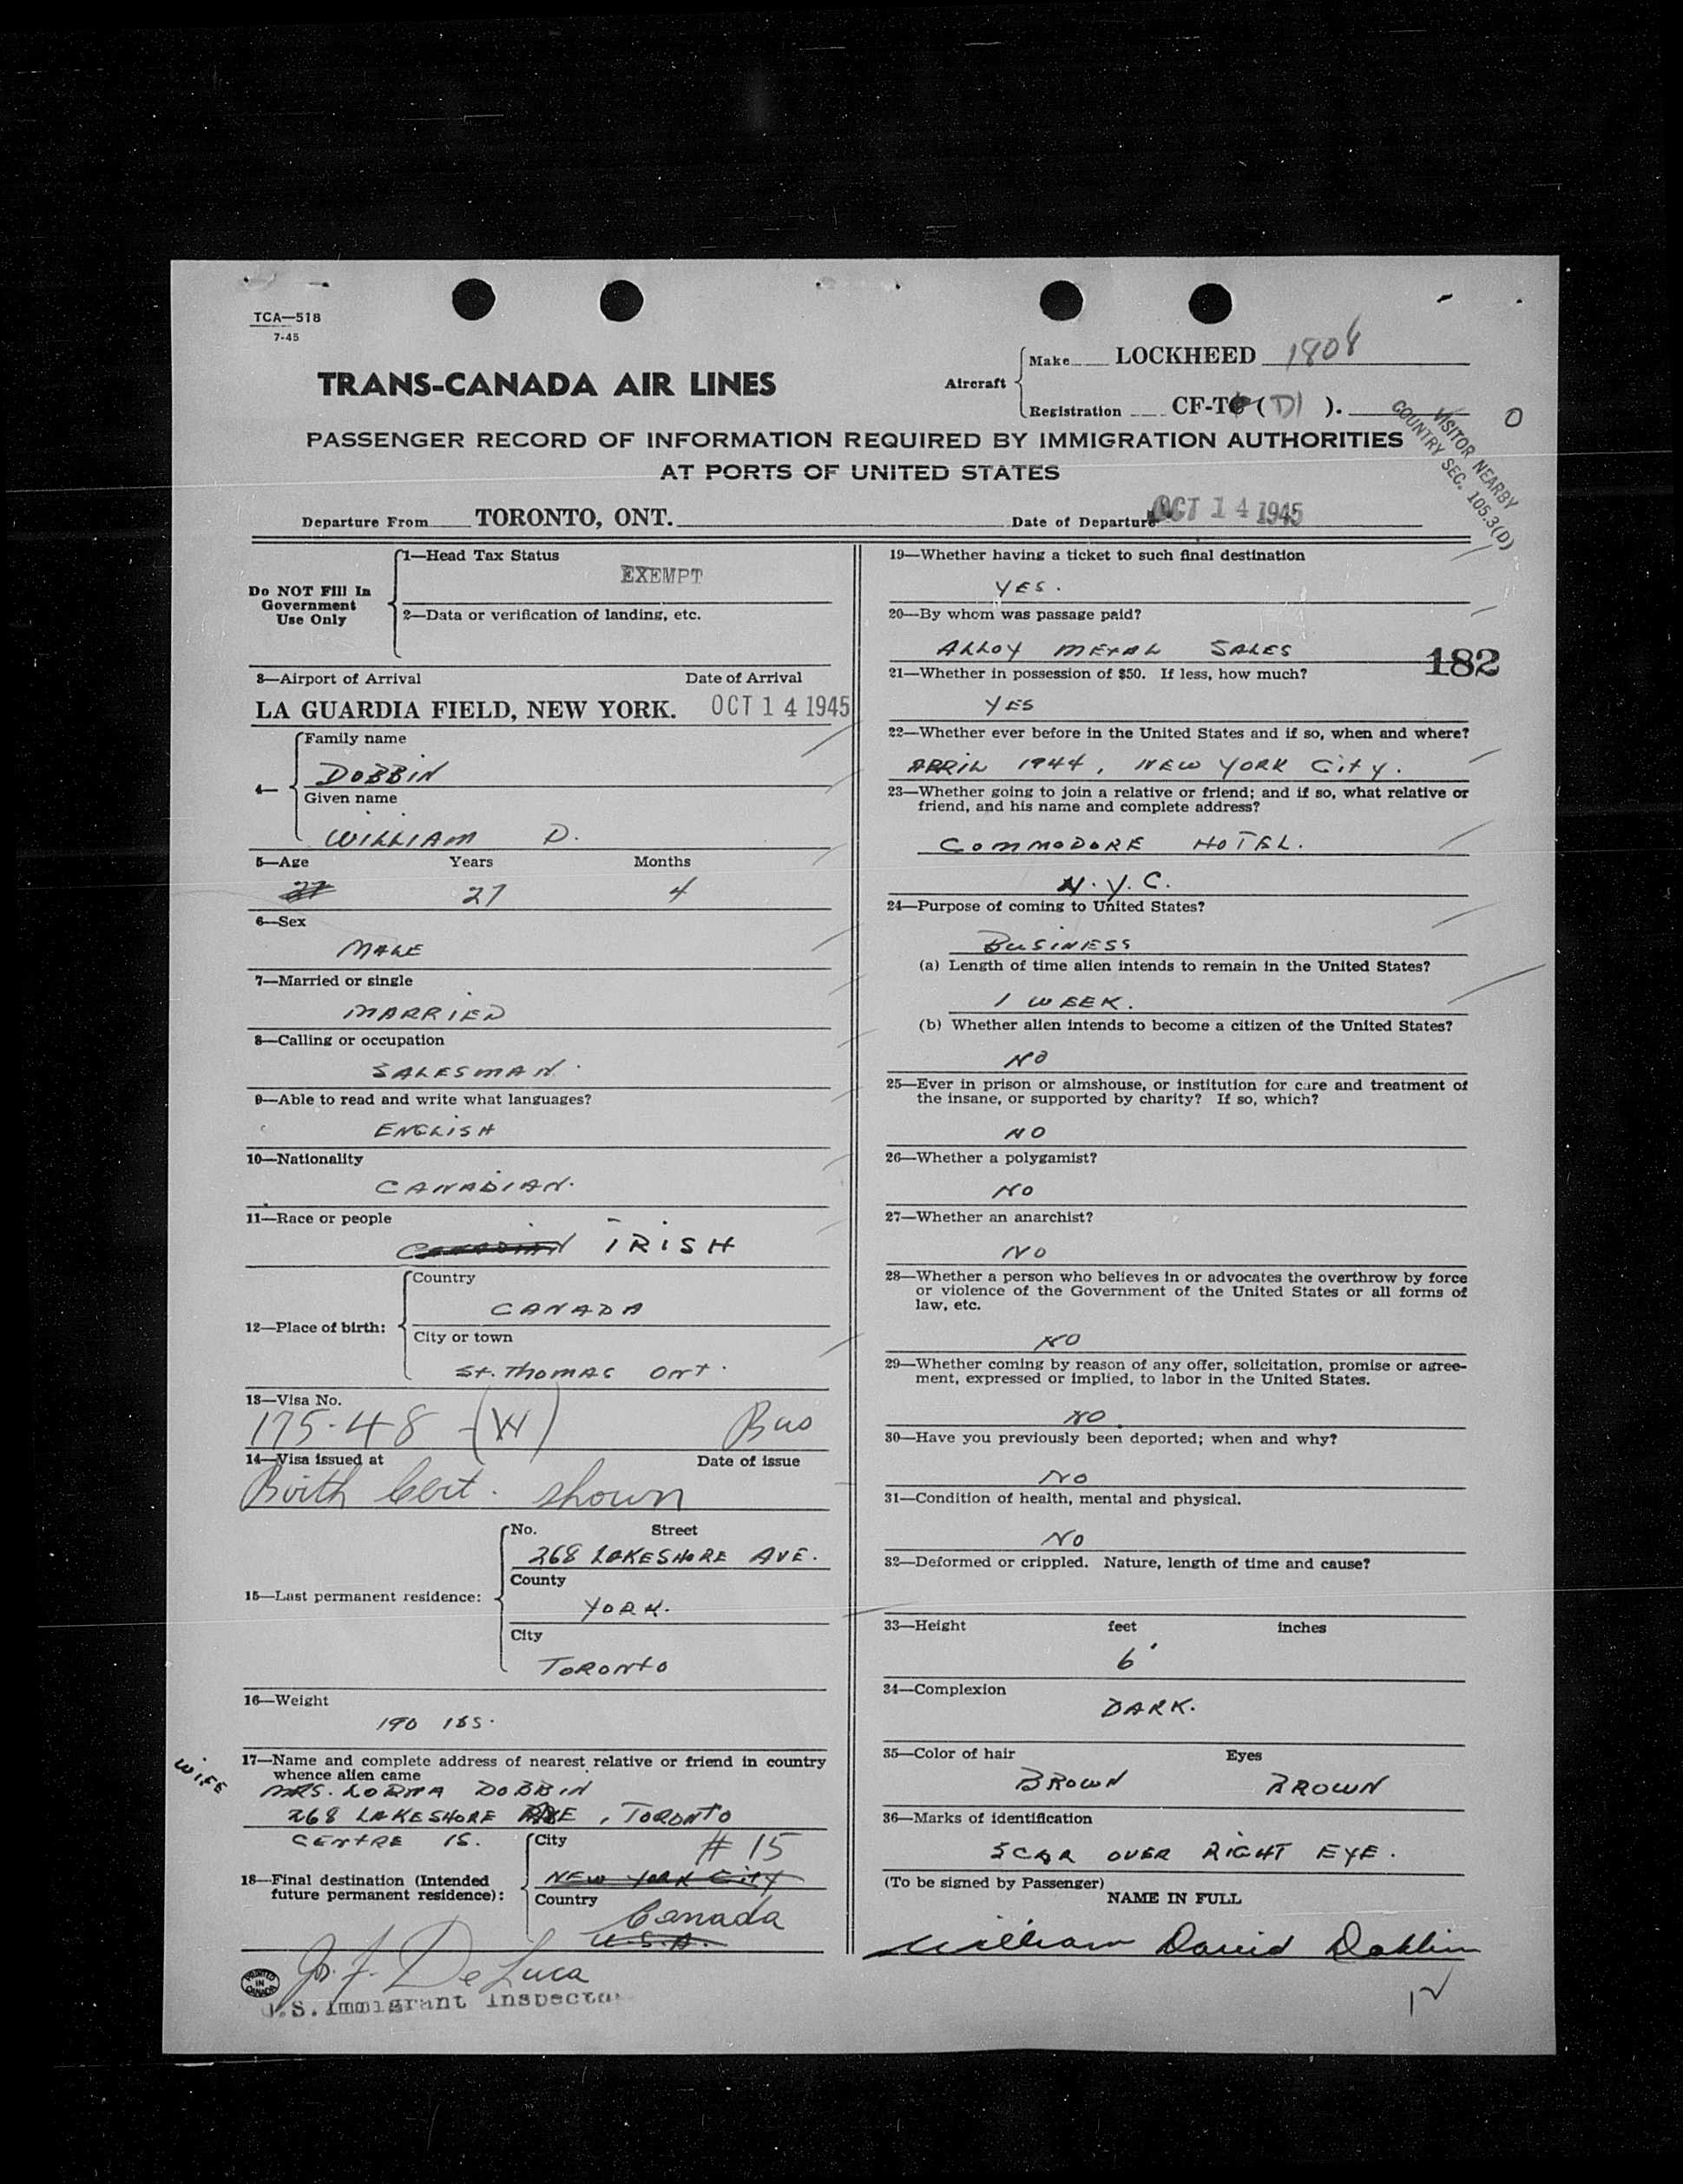 TCA—518
7-45
TRANS-CANADA AIR LINES
Aircraft
Make LOCKHEED 1808
Registration CF-T (D).
O
VISITOR NEARBY
COUNTRY SEC. 105.3(D)
PASSENGER RECORD OF INFORMATION REQUIRED BY IMMIGRATION AUTHORITIES
AT PORTS OF UNITED STATES
Departure From TORONTO, ONT. Date of Departure OCT 14 1945
Do NOT Fill In
Government
Use Only
1—Head Tax Status
EXEMPT
2—Data or verification of landing, etc.
3—Airport of Arrival Date of Arrival
LA GUARDIA FIELD, NEW YORK. OCT 14 1945
4—
Family name
DOBBIN
Given name
WILLIAM D.
5—Age Years Months
27 27 4
6—Sex
MALE
7—Married or single
MARRIED
8—Calling or occupation
SALESMAN.
9—Able to read and write what languages?
ENGLISH
10—Nationality
CANADIAN.
11—Race or people
CANADIAN IRISH
12—Place of birth:
Country
CANADA
City or town
St. THOMAS ONT.
13—Visa No.
175-48 (W) Bus
14—Visa issued at Date of issue
Birth Cert. shown
15—Last permanent residence:
No. Street
268 LAKESHORE AVE.
County
YORK.
City
TORONTO
16—Weight
190 lbs.
WIFE
17—Name and complete address of nearest relative or friend in country
whence alien came
MRS. LORNA DOBBIN
268 LAKESHORE AVE, TORONTO
CENTRE IS.
City # 15
18—Final destination (Intended
future permanent residence):
NEW YORK CITY
Country
Canada
U.S.A.
PRINTED IN CANADA
J. F. De Luca
U.S. Immigrant Inspector
19—Whether having a ticket to such final destination
YES.
20—By whom was passage paid?
ALLOY METAL SALES
182
21—Whether in possession of $50. If less, how much?
YES
22—Whether ever before in the United States and if so, when and where?
APRIL 1944, NEW YORK CITY.
23—Whether going to join a relative or friend; and if so, what relative or
friend, and his name and complete address?
COMMODORE HOTEL.
N.Y.C.
24—Purpose of coming to United States?
BUSINESS
(a) Length of time alien intends to remain in the United States?
1 WEEK.
(b) Whether alien intends to become a citizen of the United States?
NO
25—Ever in prison or almshouse, or institution for care and treatment of
the insane, or supported by charity? If so, which?
NO
26—Whether a polygamist?
NO
27—Whether an anarchist?
NO
28—Whether a person who believes in or advocates the overthrow by force
or violence of the Government of the United States or all forms of
law, etc.
NO
29—Whether coming by reason of any offer, solicitation, promise or agree-
ment, expressed or implied, to labor in the United States.
NO.
30—Have you previously been deported; when and why?
NO
31—Condition of health, mental and physical.
NO
32—Deformed or crippled. Nature, length of time and cause?
33—Height feet inches
6'
34—Complexion
DARK.
35—Color of hair Eyes
BROWN BROWN
36—Marks of identification
SCAR OVER RIGHT EYE.
(To be signed by Passenger)
NAME IN FULL
William David Dobbin